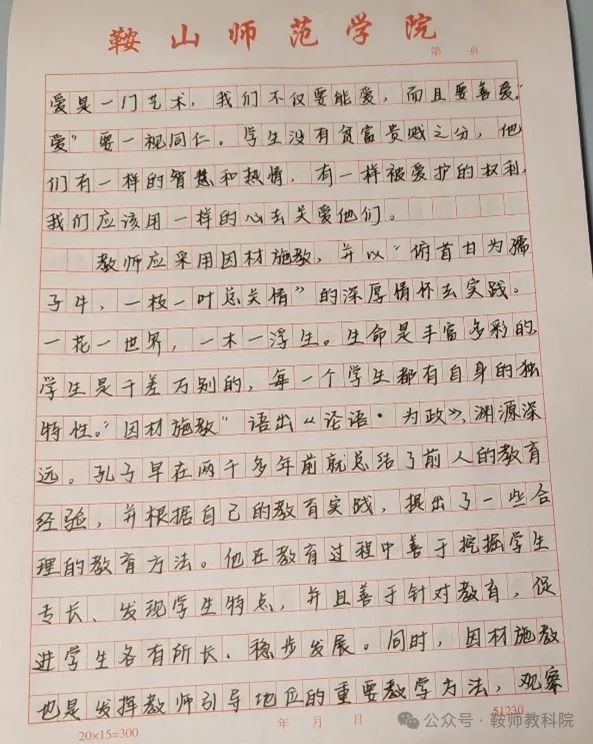 鞍山师范学院
第 页
爱是一门艺术，我们不仅要能爱，而且要善爱。“
爱”要一视同仁。学生没有贫富贵贱之分，他
们有一样的智慧和热情，有一样被爱护的权利，
我们应该用一样的心去关爱他们。
教师应采用因材施教，并以“俯首甘为孺
子牛，一枝一叶总关情”的深厚情怀去实践。
一花一世界，一木一浮生。生命是丰富多彩的，
学生是千差万别的，每一个学生都有自身的独
特性。“因材施教”语出《论语·为政》，渊源深
远。孔子早在两千多年前就总结了前人的教育
经验，并根据自己的教育实践，提出了一些合
理的教育方法。他在教育过程中善于挖掘学生
专长、发现学生特点，并且善于针对教育，促
进学生各有所长、稳步发展。同时，因材施教
也是发挥教师引导地位的重要教学方法，观察
20×15=300
年 月 日
51230
公众号·鞍师教科院